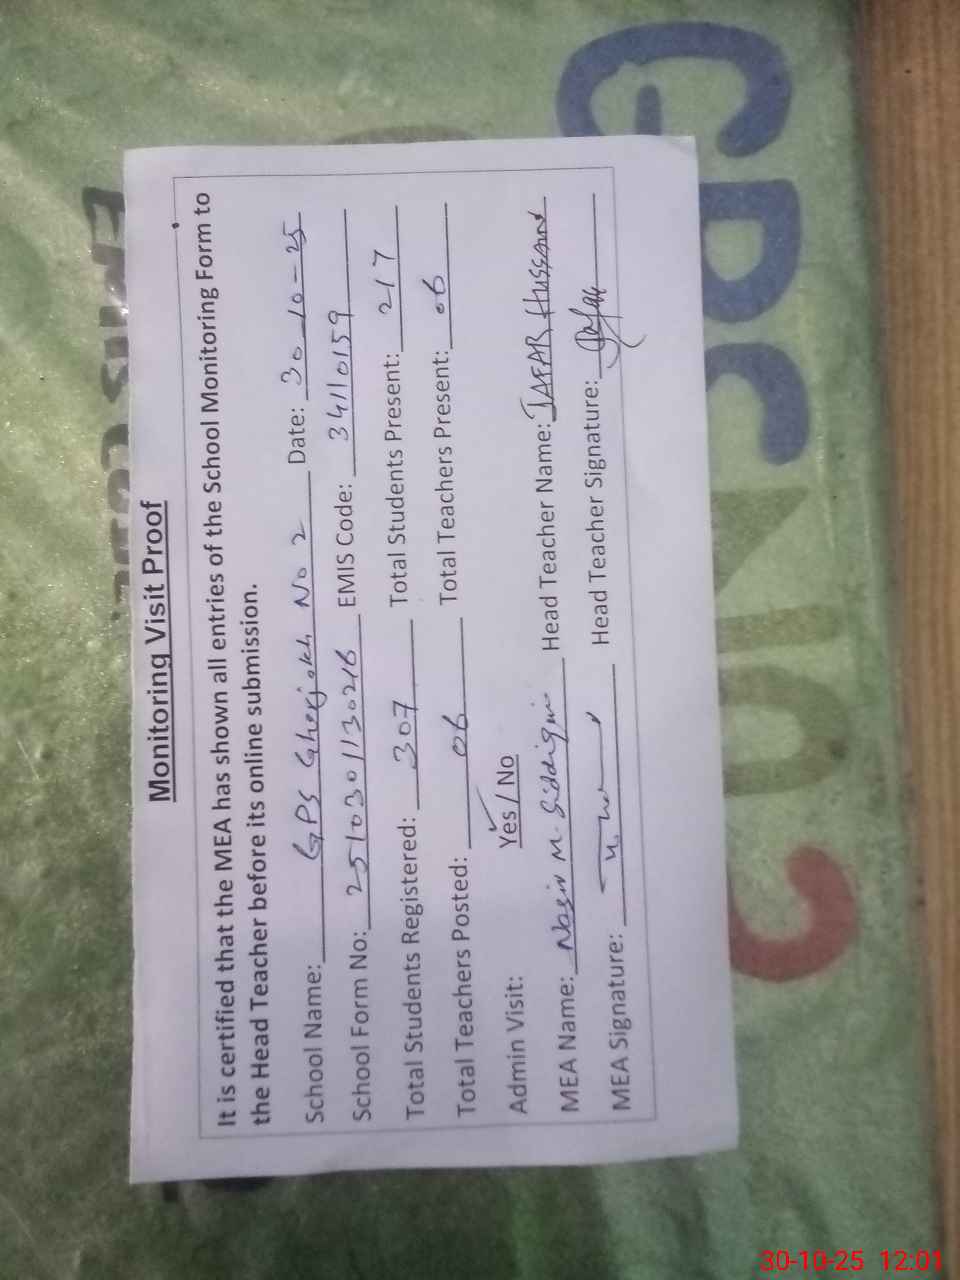 Monitoring Visit Proof
It is certified that the MEA has shown all entries of the School Monitoring Form to
the Head Teacher before its online submission.
School Name: GPS Gherjakh No 2 Date: 30-10-25
School Form No: 2510301130216 EMIS Code: 34110159
Total Students Registered: 307 Total Students Present: 217
Total Teachers Posted: 06 Total Teachers Present: 06
Admin Visit: Yes / No
MEA Name: Nasir M. Siddiqui Head Teacher Name: JAFAR Hussain
MEA Signature: Head Teacher Signature:
GPS NO 2
30-10-25 12:01